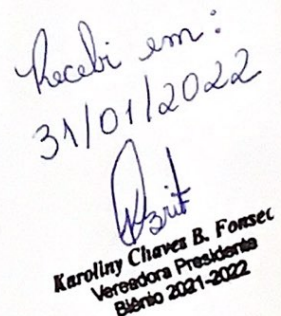 Recebi em:
31/01/2022
Karoliny Chaves B. Fonsec
Vereadora Presidente
Biênio 2021-2022